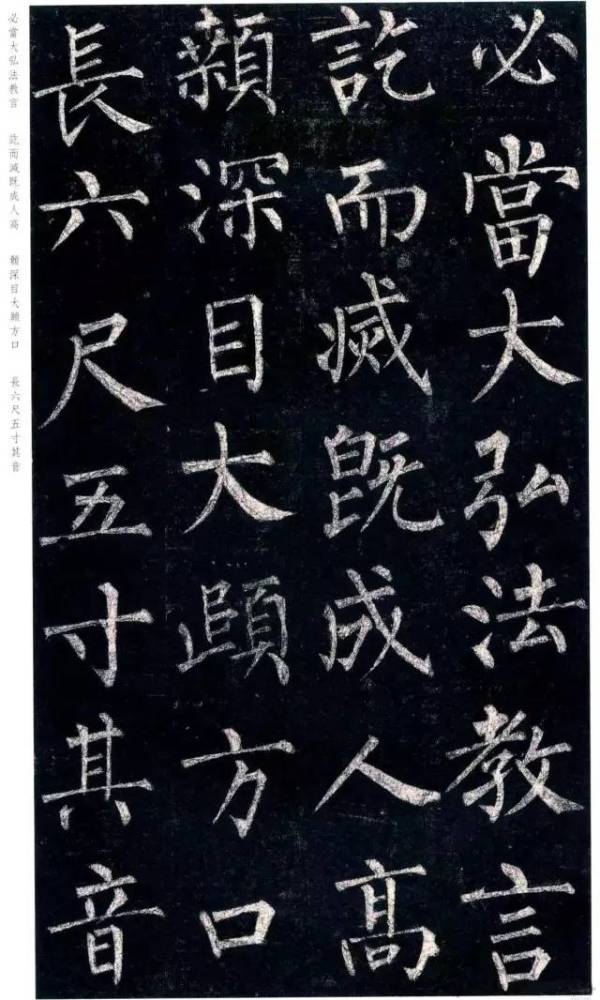 必當大弘法教言
訖而滅既成人高
顙深目大頤方口
長六尺五寸其音
必當大弘法教言 訖而滅既成人高 顙深目大頤方口 長六尺五寸其音